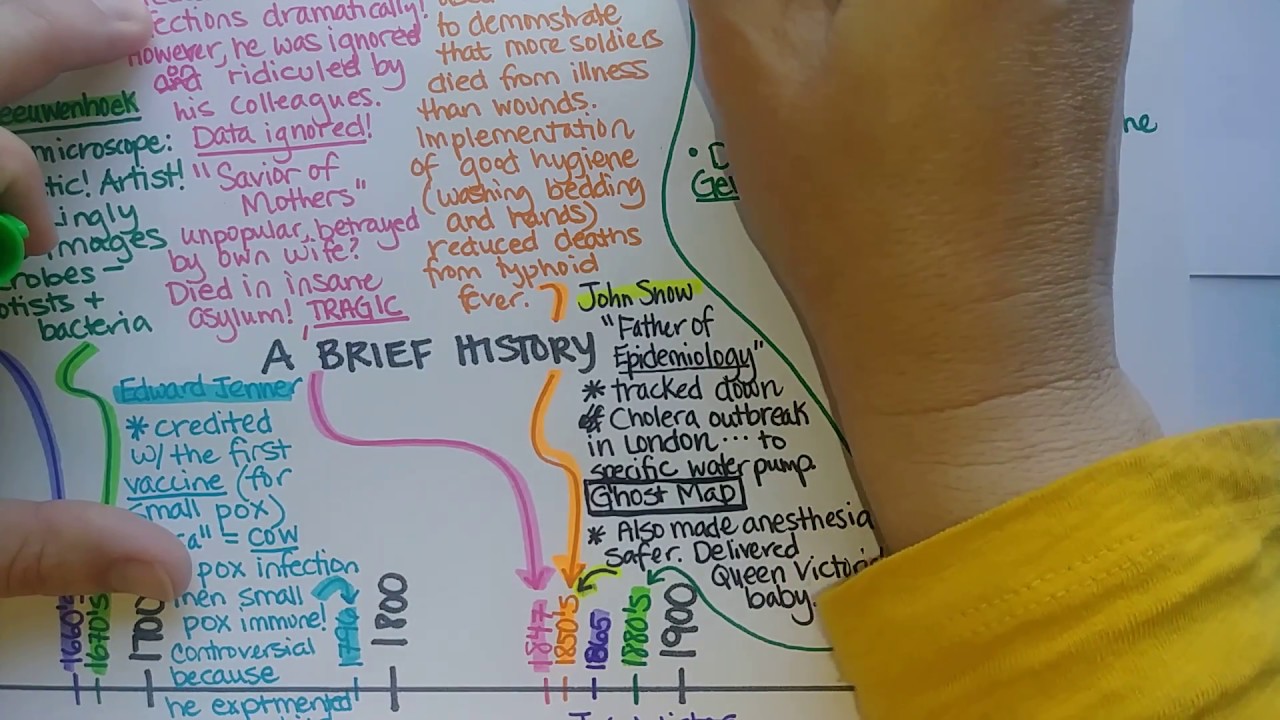 ections dramatically!
However, he was ignored
and ridiculed by
his colleagues.
Data ignored!
"Savior of
Mothers"
unpopular, betrayed
by own wife?
Died in insane
asylum! TRAGIC
to demonstrate
that more soldiers
died from illness
than wounds.
Implementation
of good hygiene
(washing bedding
and hands)
reduced deaths
from typhoid
fever.
eeuwenhoek
microscope:
tic! Artist!
ingly
mages
robes -
otists +
bacteria
he
A BRIEF HISTORY
John Snow
"Father of
Epidemiology"
* tracked down
Cholera outbreak
in London ... to
specific water pump.
Ghost Map
* Also made anesthesia
safer. Delivered
Queen Victoria
baby.
Edward Jenner
* credited
w/ the first
vaccine (for
small pox)
a" = cow
pox infection
then small
pox immune!
controversial
because
he exptmented
1660's
1670's
1700
1796
1800
1847
1850's
1865
1880's
1900